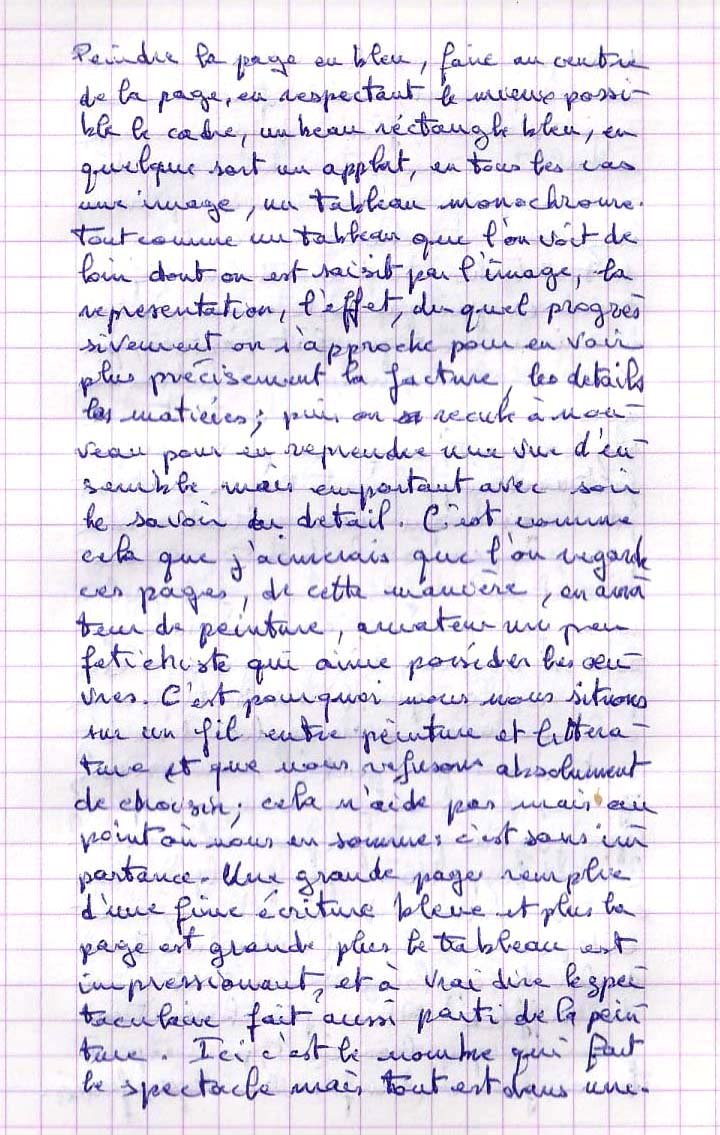 Peindre la page en bleu, faire au centre
de la page, en respectant le mieux possi-
ble le cadre, un beau réctangle bleu, en
quelque sort un applat, en tous les cas
une image, un tableau monochrome.
Tout comme un tableau que l'on voit de
loin dont on est saisit par l'image, la
representation, l'effet, du quel progres
sivement on s'approche pour en voir
plus précisement la facture, les details
les matières; puis on recule à nou-
veau pour en reprendre une vue d'en-
semble mais emportant avec soin
le savoir du detail. C'est comme
cela que j'aimerais que l'on regarde
ces pages, de cette manière, en ama
teur de peinture, amateur un peu
fetichiste qui aime posséder les oeu-
vres. C'est pourquoi nous nous situons
sur un fil entre peinture et littera-
ture et que nous refusons absolument
de choisir; cela n'aide pas mais au
point où nous en sommes c'est sans im
portance. Une grande page remplie
d'une fine écriture bleue et plus la
page est grande plus le tableau est
impressionant, et à vrai dire le spec
taculaire fait aussi parti de la pein
ture. Ici c'est le nombre qui fait
le spectacle mais tout est dans une.